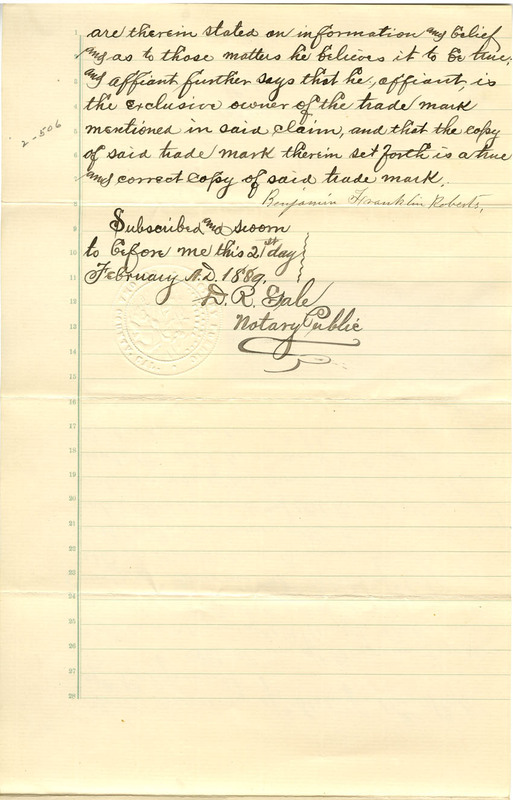 are therein stated on information and belief
and as to those matters he believes it to be true,
and affiant further says that he, affiant, is
the exclusive owner of the trade mark
mentioned in said claim, and that the copy
of said trade mark therein set forth is a true
and correct copy of said trade mark.
Benjamin Franklin Roberts,
Subscribed and sworn
to before me this 21st day
February A.D. 1889.
D. R. Gale
Notary Public
2-506
1
2
3
4
5
6
7
8
9
10
11
12
13
14
15
16
17
18
19
20
21
22
23
24
25
26
27
28